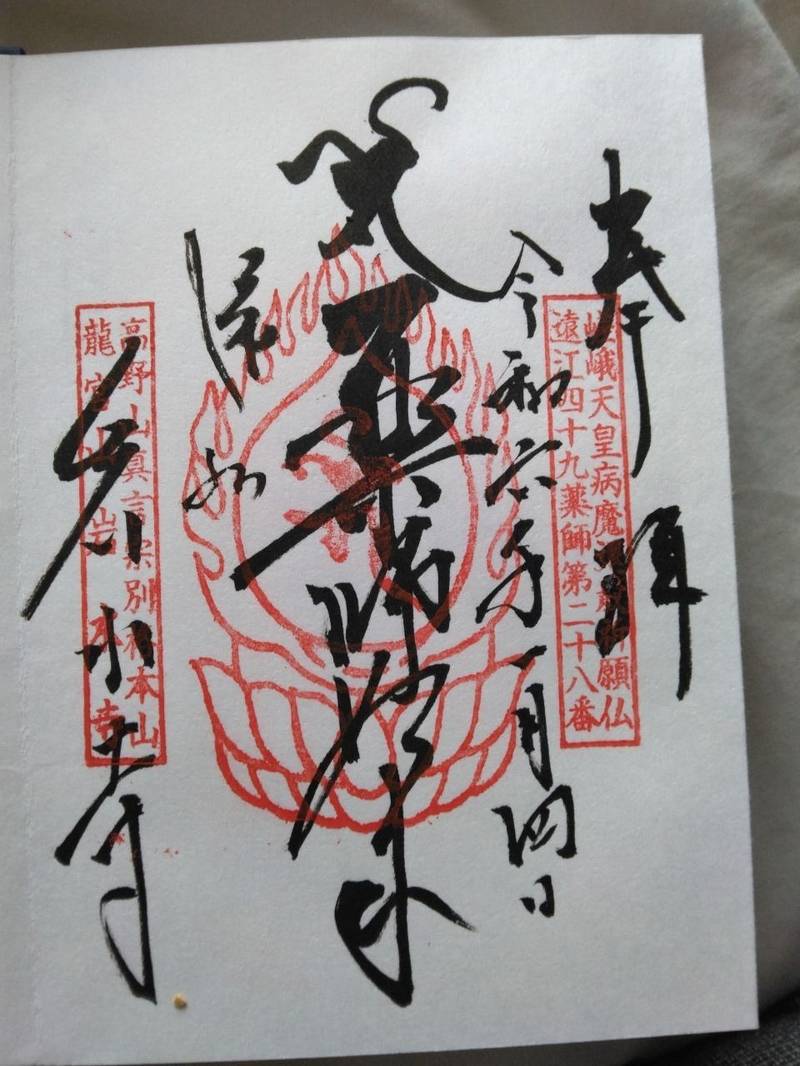 奉拝
嵯峨天皇病魔 祈願仏
遠江四十九薬師第二十八番
令和六年一月四日
薬師如来
高野山真言宗別格本山
龍宮山岩水寺
岩水寺